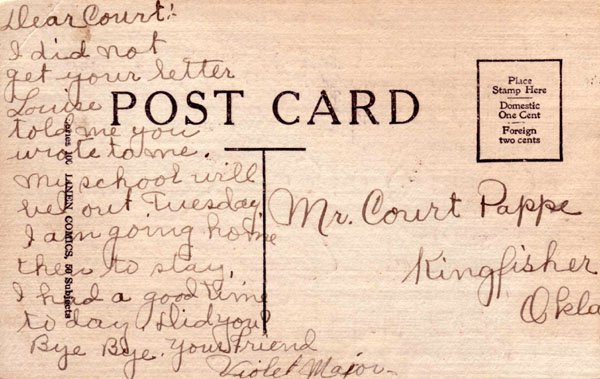 Dear Court:
I did not
get your letter
Louise
told me you
wrote to me.
My school will
be out Tuesday
I am going home
then to stay.
I had a good time
to day. Did you?
Bye Bye. Your Friend
Violet Major
POST CARD
Place
Stamp Here
Domestic
One Cent
Foreign
two cents
Mr. Court Pappe
Kingfisher
Okla
LINEN COMICS, 50 Subjects